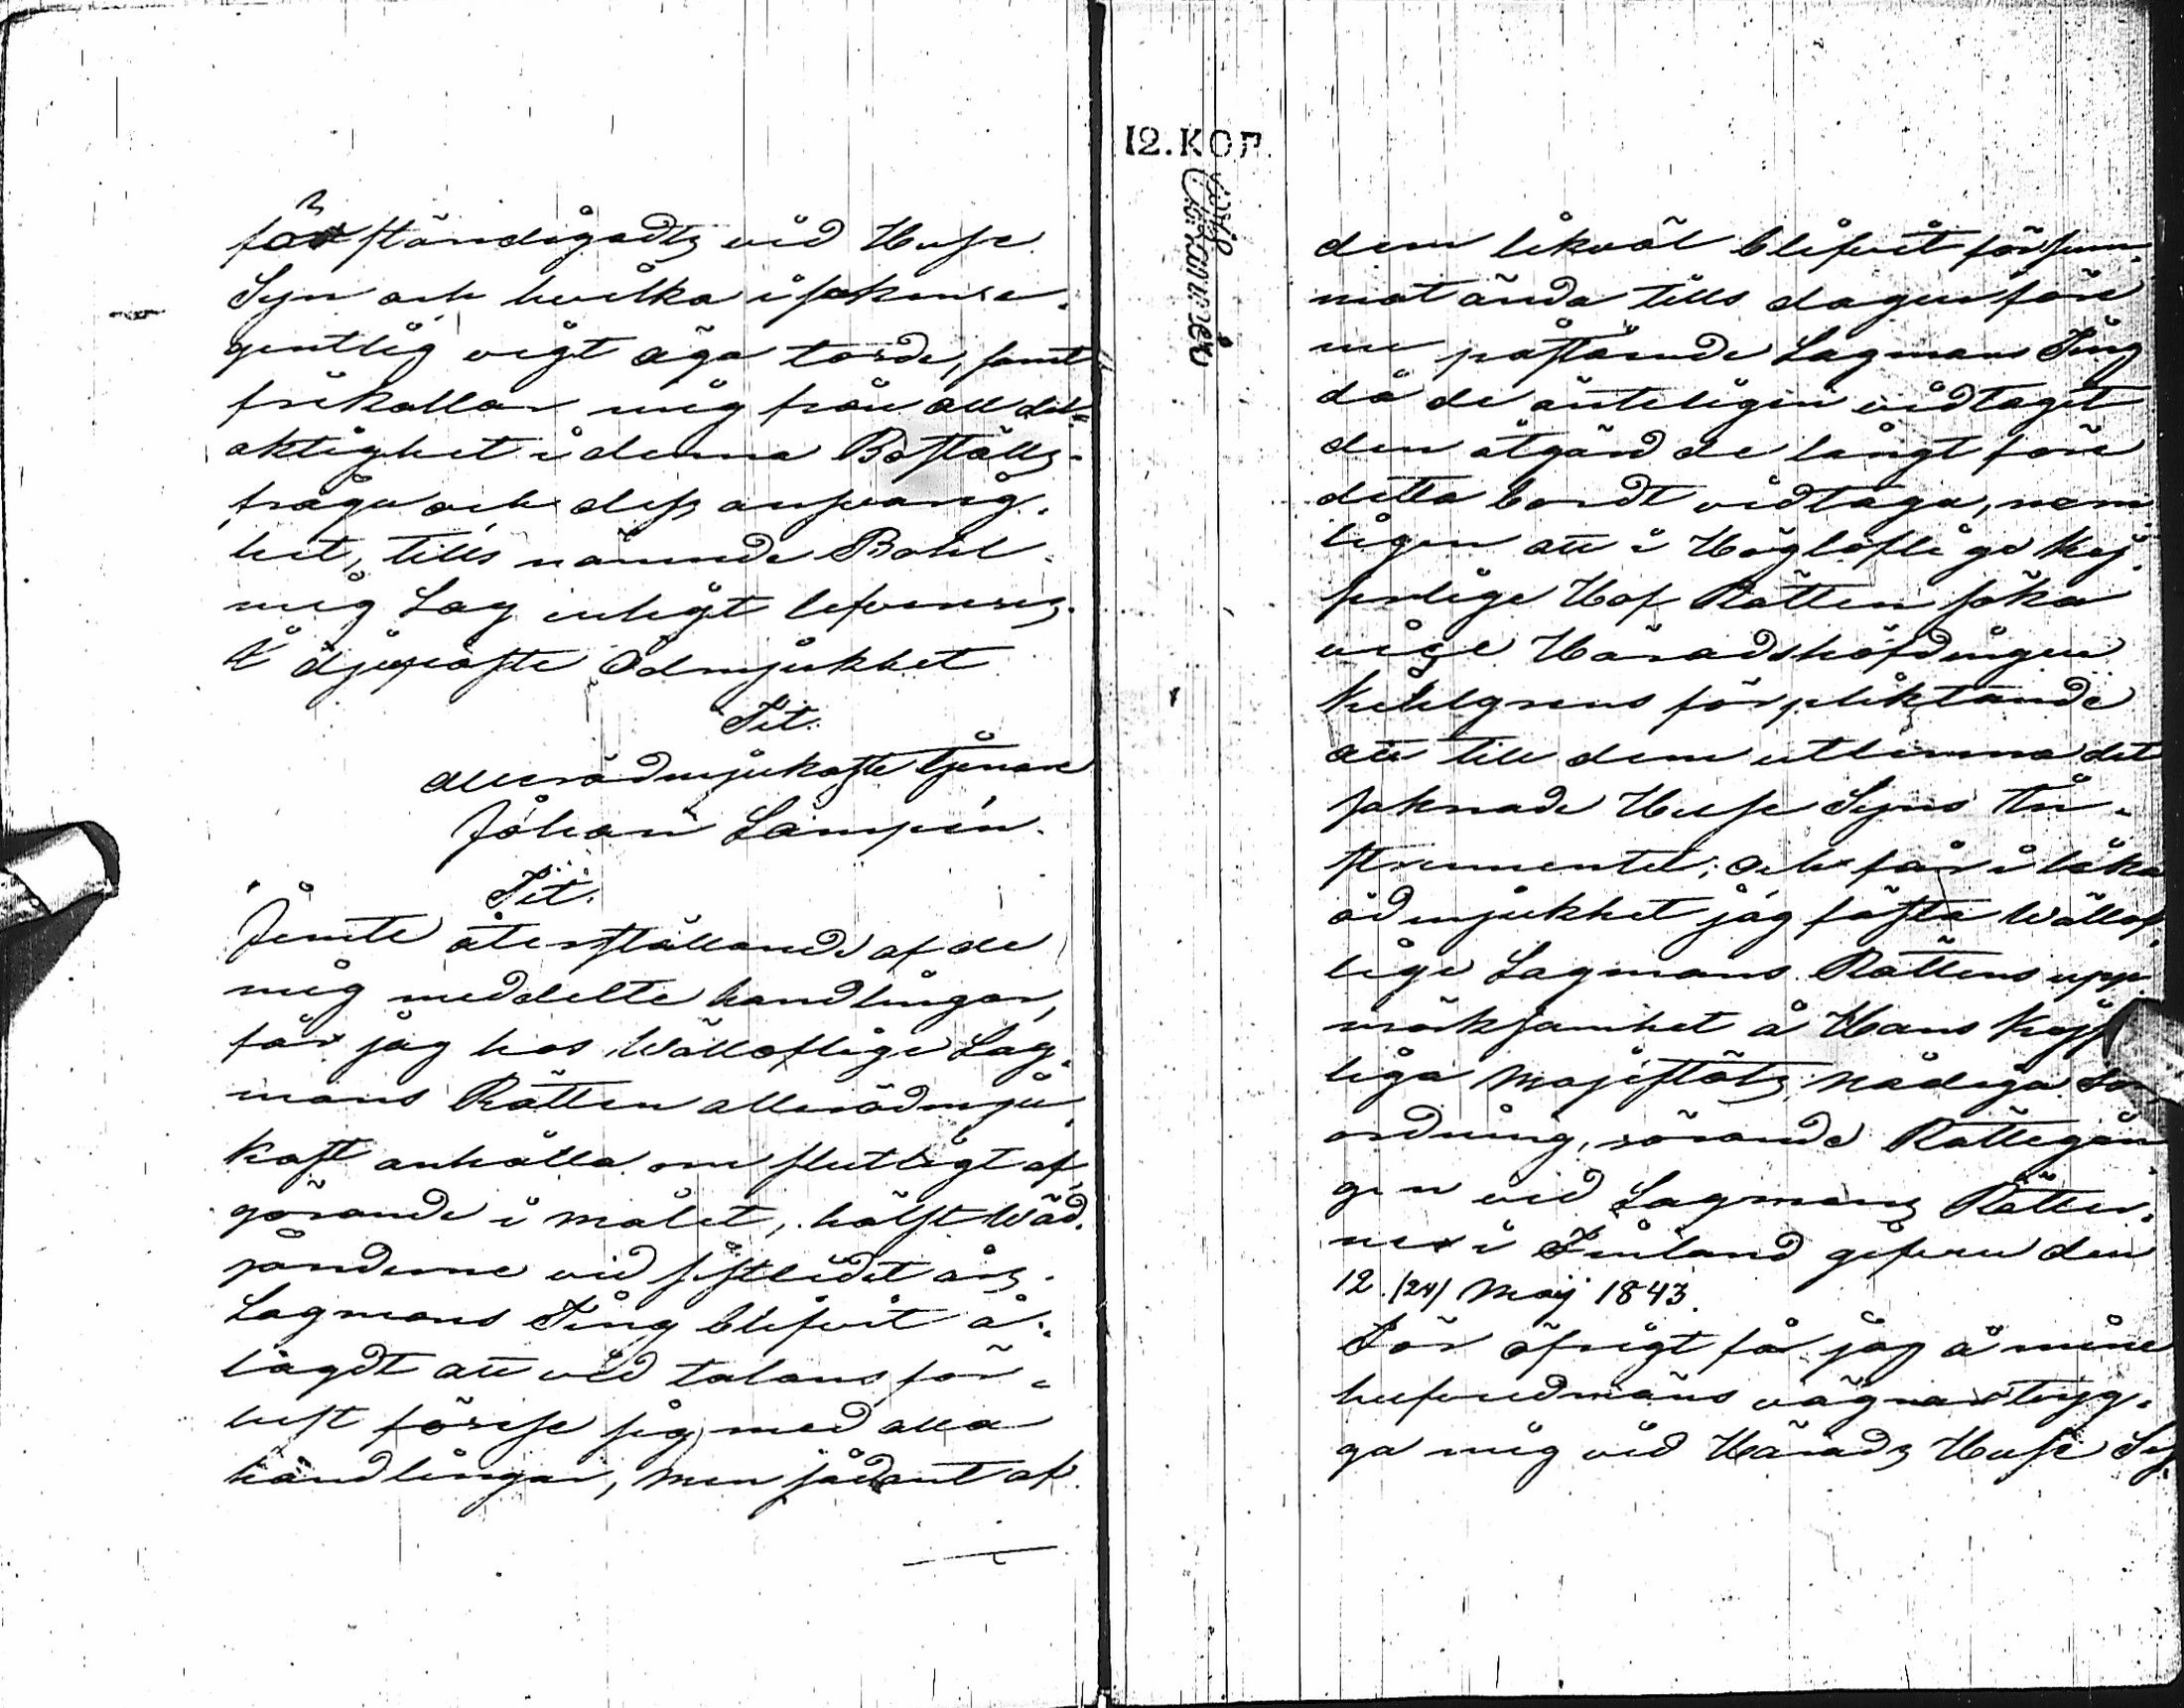 fårständigadts vid Huse
Syn och hvilka i saken e-
gentlig vigt äga torde, samt
frikallar mig från all del-
aktighet i denna Boställs-
fråga och dess ansvarig-
het, tills nämnde Bohl
mig Lag enligt lefvereras.
Å djupaste Ödmjukhet
Tit.
allerödmjukaste tjenare
Johan Lampén.
Tit.
Jemte återställande af de
mig meddelte handlingar,
får jag hos Wällofliga Lag-
mans Rätten allerödmju-
kast anhålla om slutligt af-
görande i målet, hälst Wäd-
jánderne vid sistledit års
Lagmans Ting blifvit å-
lagdt att vid talans för-
lust förse sig med alla
handlingar, men sådant af
12.KOP.
dem likväl blifvit försum-
mat ända tills dagen före
nu påstående Lagmans Ting
då de änteligen vidtagit
den åtgärd de långt före
detta bordt vidtaga, nem-
ligen att i Höglofliga Kej-
serliga Hof Rätten söka
vice Häradshöfdingen
Kihlgrens förpliktande
att till dem utlemna det
saknade Huse Syns In-
strumentet; och får i lika
ödmjukhet jag fästa Wällof-
lige Lagmans Rättens upp-
märksamhet å Hans Kejser-
liga Majestäts Nådiga För-
ordning, rörande Rättegån-
gen vid Lagmans Rätter-
ne i Finland gifven den
12.(24) Maj 1843.
För öfrigt få jag å mine
hufvudmäns vägnar tryg-
ga mig vid Härads Huse Sy